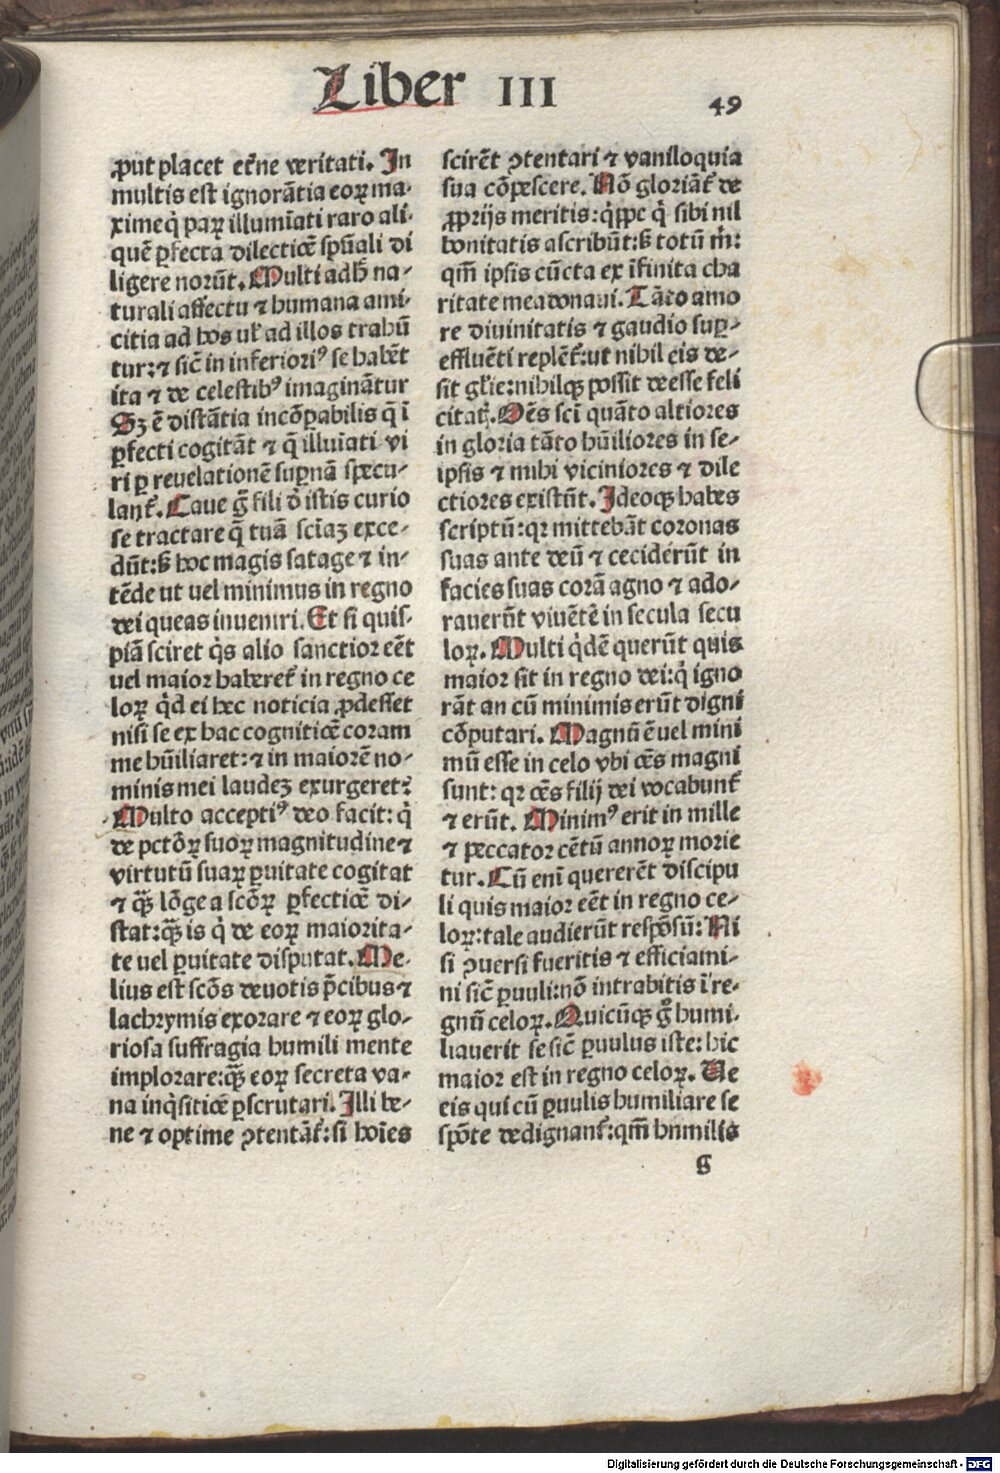 Liber III
49
ꝓut placet et̄ne veritati. In
multis est ignorātia eoꝝ ma-
xime q̇ paꝝ illumīati raro ali-
quē ꝑfecta dilectiōe spūali di
ligere norūt. Multi adhꝰ na-
turali affectu ⁊ humana ami-
citia ad hos ul' ad illos trahū
tur: ⁊ sic̄ in inferiorib⁹ se habēt
ita ⁊ de celestib⁹ imaginātur
Sꝫ ē distātia incōꝑabilis q̄ ī
ꝑfecti cogitāt ⁊ q̄ illuīati vi
ri ꝑ revelationē supnā specu-
lant᷑. Caue g̃ fili d̓ istis curio
se tractare q̄ tuā sciāꝫ exce-
dūt: sꝫ hoc magis satage ⁊ in-
tēde ut uel minimus in regno
dei queas inueniri. Et si quis-
piā sciret q̇s alio sanctior eēt
uel maior haberet᷑ in regno ce
loꝝ q̇d ei hec noticia ꝓdesset
nisi se ex hac cognitiōe coram
me hūiliaret: ⁊ in maiorē no-
minis mei laudeꝫ exurgeret?
Multo accepti⁹ deo facit: q̇
de pctōꝝ suoꝝ magnitudine ⁊
virtutū suaꝝ ꝑuitate cogitat
⁊ qꝫ̄ lōge a scōꝝ ꝑfectiōe di-
stat: qꝫ̄ is q̇ de eoꝝ maiorita-
te uel ꝑuitate disputat. Me-
lius est scōs deuotis p̄cibus ⁊
lachrymis exorare ⁊ eoꝝ glo-
riosa suffragia humili mente
implorare: qꝫ̄ eoꝝ secreta va-
na inq̇sitiōe ꝑscrutari. Illi be-
ne ⁊ optime ꝯtentāt᷑: si hoīes
scirēt ꝯtentari ⁊ vaniloquia
sua cōpescere. Nō gloriāt᷑ de
ꝓprijs meritis: q̇ppe q̇ sibi nil
bonitatis ascribūt: sꝫ totū m̓:
qm̄ ipsis cūcta ex īfinita cha
ritate mea donaui. Tāto amo
re diuinitatis ⁊ gaudio suꝑ-
effluēti replēt᷑: ut nihil eis de-
sit gl'ie: nihilqꝫ possit deesse feli
citatꝭ. Oēs sci̅ quāto altiores
in gloria tāto hūiliores in se-
ipsis ⁊ mihi viciniores ⁊ dile
ctiores existūt. Ideoqꝫ habes
scriptū: qꝛ mittebāt coronas
suas ante deū ⁊ ceciderūt in
facies suas corā agno ⁊ ado-
rauerūt viuētē in secula secu
loꝝ. Multi q̇dē querūt quis
maior sit in regno dei: q̇ igno
rāt an cū minimis erūt digni
cōputari. Magnū ē uel mini
mū esse in celo vbi oēs magni
sunt: qꝛ oēs filij dei vocabunt᷑
⁊ erūt. Minim⁹ erit in mille
⁊ peccator cētū annoꝝ morie
tur. Cū eni̅ quererēt discipu
li quis maior eēt in regno ce-
loꝝ: tale audierūt respōsū: Ni
si ꝯuersi fueritis ⁊ efficiami-
ni sic̄ ꝑuuli: nō intrabitis ī re-
gnū celoꝝ. Quicūqꝫ g̊ humi-
liauerit se sic̄ ꝑuulus iste: hic
maior est in regno celoꝝ. Ve
eis qui cū ꝑuulis humiliare se
spōte dedignant᷑: qm̄ humilis
g
Digitalisierung gefördert durch die Deutsche Forschungsgemeinschaft - DFG